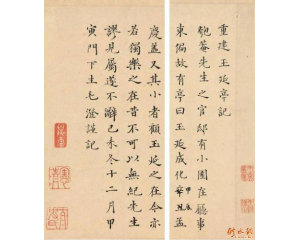 重建玉延亭記
匏菴先生之官邸有小園在廳事
東偏故有亭曰玉延成化
又其小者顧玉延之在今亦
若獨樂之在昔不可以無紀先生
謬見屬遂不辭己未冬十二月甲
寅門下士毛澄謹記